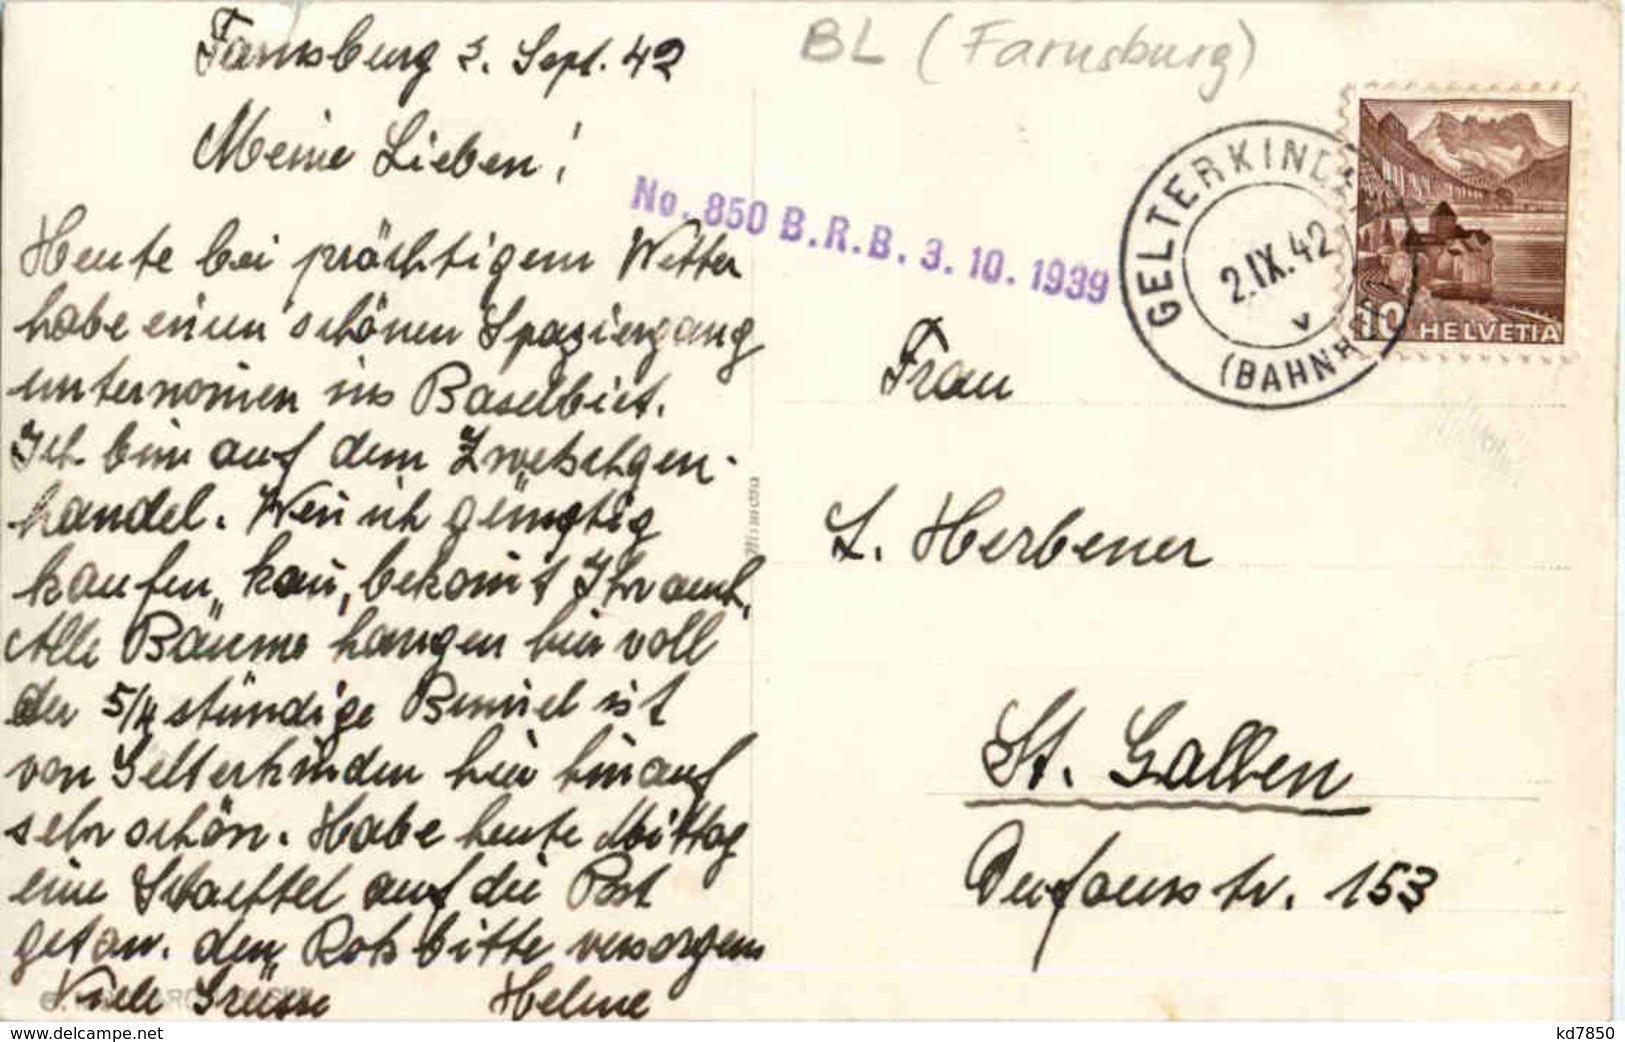 Farnsburg 2. Sept. 42
Meine Lieben!
Heute bei prächtigem Wetter
habe einen schönen Spaziergang
unternom̄en ins Baselbiet.
Ich bin auf dem Zwetschgen-
handel. Wen̄ ich günstig
kaufen kan̄, bekom̄t Ihr auch.
Alle Bäume hangen hier voll
der 5/4 stündige Bum̄el ist
von Gelterkinden hier hinauf
sehr schön. Habe heute Mittag
eine Schachtel auf die Post
getan. den Rock bitte versorgen
Viele Grüsse Helene
BL (Farnsburg)
No. 850 B.R.B. 3. 10. 1939
GELTERKIND
2.IX.42
V
(BAHNH
10 HELVETIA
Mimosa
Frau
L. Herbener
St. Gallen
Dufourstr. 153
www.delcampe.net
kd7850